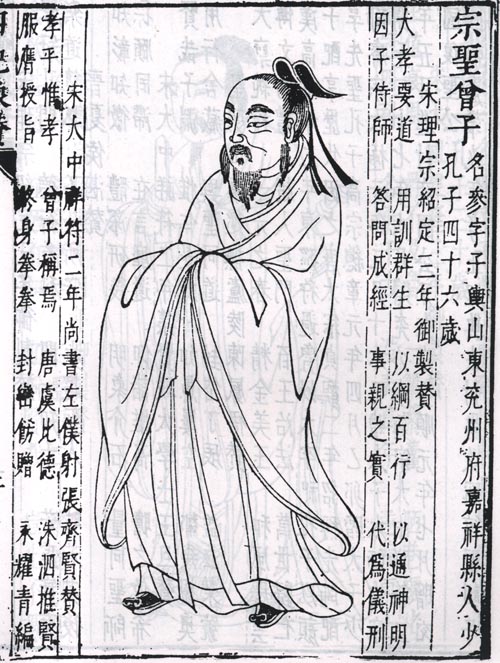 宗聖曾子
名參字子輿山東兖州府嘉祥縣人少
孔子四十六歲
宋理宗紹定三年御製賛
大孝要道 用訓群生 以綱百行 以通神明
因子侍師 答問成經 事親之實 代爲儀刑
宋大中祥符二年尚書左僕射張齊賢賛
孝乎惟孝 曾子稱焉 唐虞比德 洙泗推賢
服膺授旨 終身拳拳 封巒飭贈 永耀青編